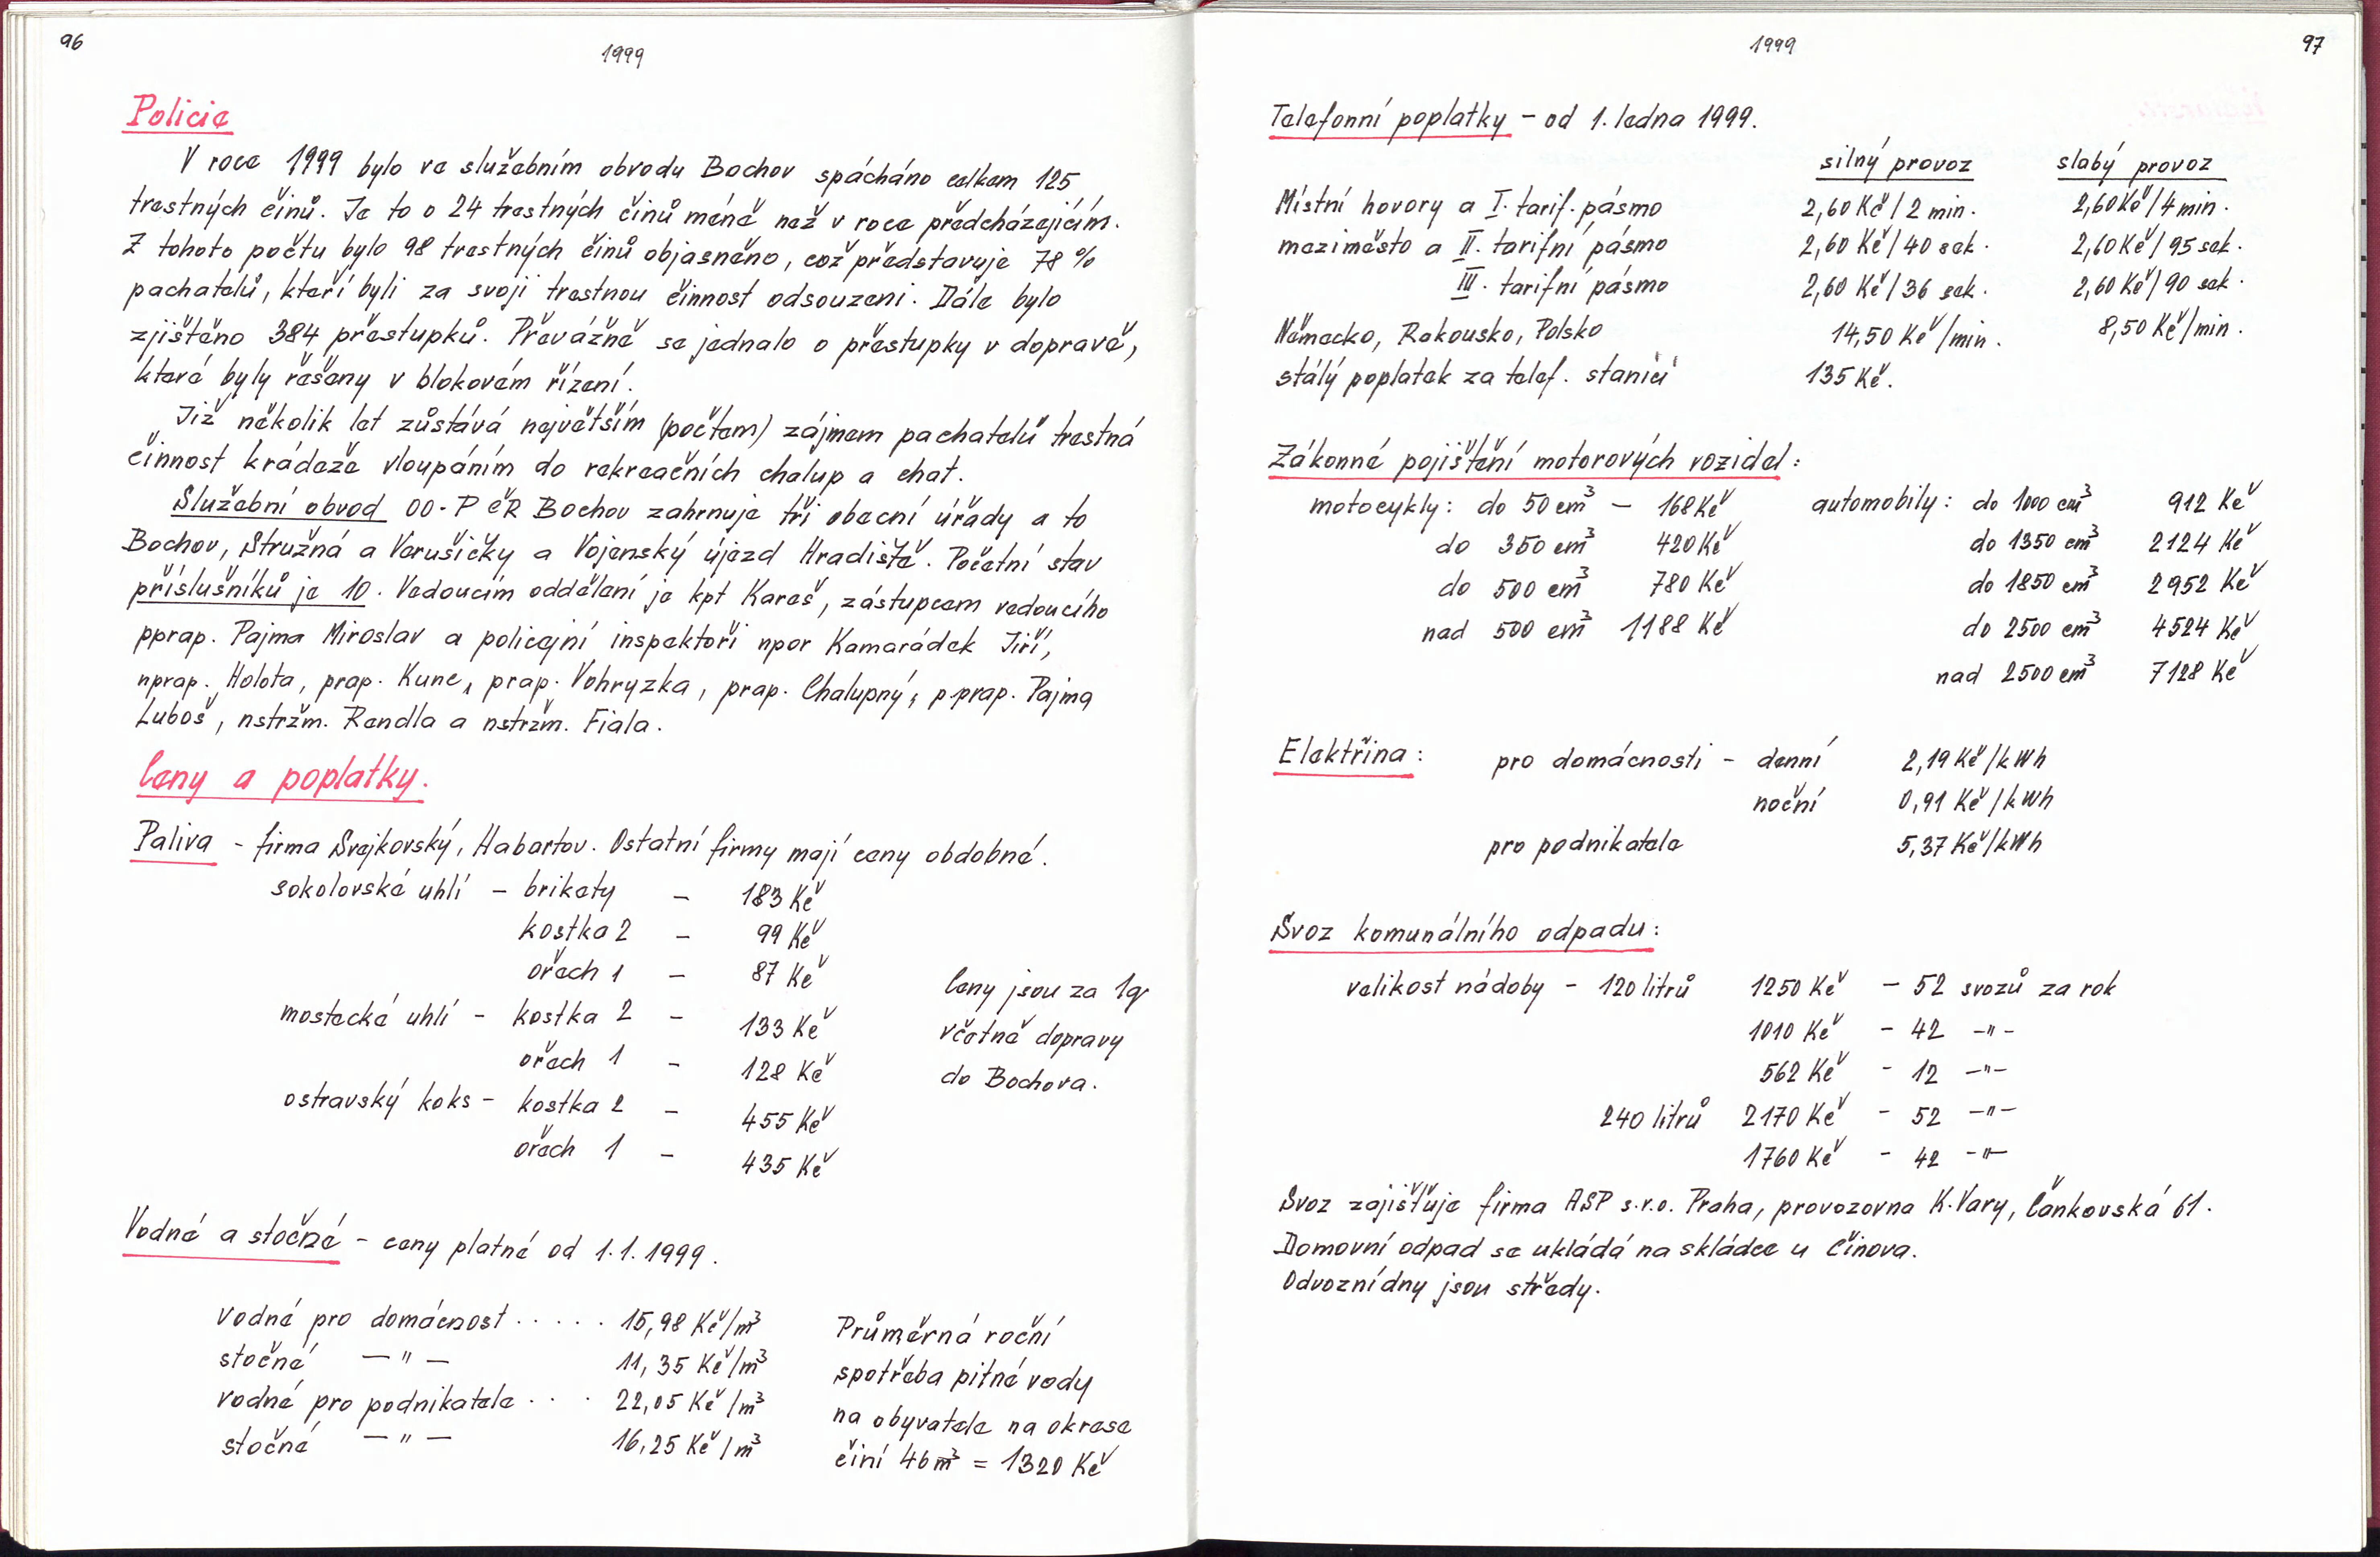 96
1999
Policie
V roce 1999 bylo ve služebním obvodu Bochov spácháno celkem 125
trestných činů. Je to o 24 trestných činů méně než v roce předcházejícím.
Z tohoto počtu bylo 98 trestných činů objasněno, což představuje 78 %
pachatelů, kteří byli za svoji trestnou činnost odsouzeni. Dále bylo
zjištěno 384 přestupků. Převážně se jednalo o přestupky v dopravě,
které byly řešeny v blokovém řízení.
Již několik let zůstává největším (počtem) zájmem pachatelů trestná
činnost krádeže vloupáním do rekreačních chalup a chat.
Služební obvod OO-P ČR Bochov zahrnuje tři obecní úřady a to
Bochov, Stružná a Verušičky a Vojenský újezd Hradiště. Početní stav
příslušníků je 10. Vedoucím oddělení je kpt Kareš, zástupcem vedoucího
pprap. Pajma Miroslav a policejní inspektoři npor Kamarádek Jiří,
nprap. Holota, prap. Kunc, prap. Vohryzka, prap. Chalupný, p.prap. Pajma
Luboš, nstržm. Rendla a nstržm. Fiala.
Ceny a poplatky.
Paliva - firma Svejkovský, Habartov. Ostatní firmy mají ceny obdobné.
sokolovské uhlí - brikety - 183 Kč
kostka 2 - 99 Kč
ořech 1 - 87 Kč
mostecké uhlí - kostka 2 - 133 Kč
ořech 1 - 128 Kč
ostravský koks - kostka 2 - 455 Kč
ořech 1 - 435 Kč
Ceny jsou za 1q
včetně dopravy
do Bochova.
Vodné a stočné - ceny platné od 1.1.1999.
vodné pro domácnost ..... 15,98 Kč/m³
stočné — " — 11,35 Kč/m³
vodné pro podnikatele ... 22,05 Kč/m³
stočné — " — 16,25 Kč/m³
Průměrná roční
spotřeba pitné vody
na obyvatele na okrese
činí 46 m³ = 1320 Kč
1999
97
Telefonní poplatky - od 1. ledna 1999.
silný provoz slabý provoz
Místní hovory a I. tarif. pásmo 2,60 Kč/2 min. 2,60 Kč/4 min.
meziměsto a II. tarifní pásmo 2,60 Kč/40 sek. 2,60 Kč/95 sek.
III. tarifní pásmo 2,60 Kč/36 sek. 2,60 Kč/90 sek.
Německo, Rakousko, Polsko 14,50 Kč/min. 8,50 Kč/min.
stálý poplatek za telef. stanici 135 Kč.
Zákonné pojištění motorových vozidel:
motocykly: do 50 cm³ - 168 Kč automobily: do 1000 cm³ 912 Kč
do 350 cm³ 420 Kč do 1350 cm³ 2124 Kč
do 500 cm³ 780 Kč do 1850 cm³ 2952 Kč
nad 500 cm³ 1188 Kč do 2500 cm³ 4524 Kč
nad 2500 cm³ 7128 Kč
Elektřina: pro domácnosti - denní 2,19 Kč/kWh
noční 0,91 Kč/kWh
pro podnikatele 5,37 Kč/kWh
Svoz komunálního odpadu:
velikost nádoby - 120 litrů 1250 Kč - 52 svozů za rok
1010 Kč - 42 -"-
562 Kč - 12 -"-
240 litrů 2170 Kč - 52 -"-
1760 Kč - 42 -"-
Svoz zajišťuje firma ASP s.r.o. Praha, provozovna K. Vary, Čankovská 61.
Domovní odpad se ukládá na skládce u Činova.
Odvozní dny jsou středy.